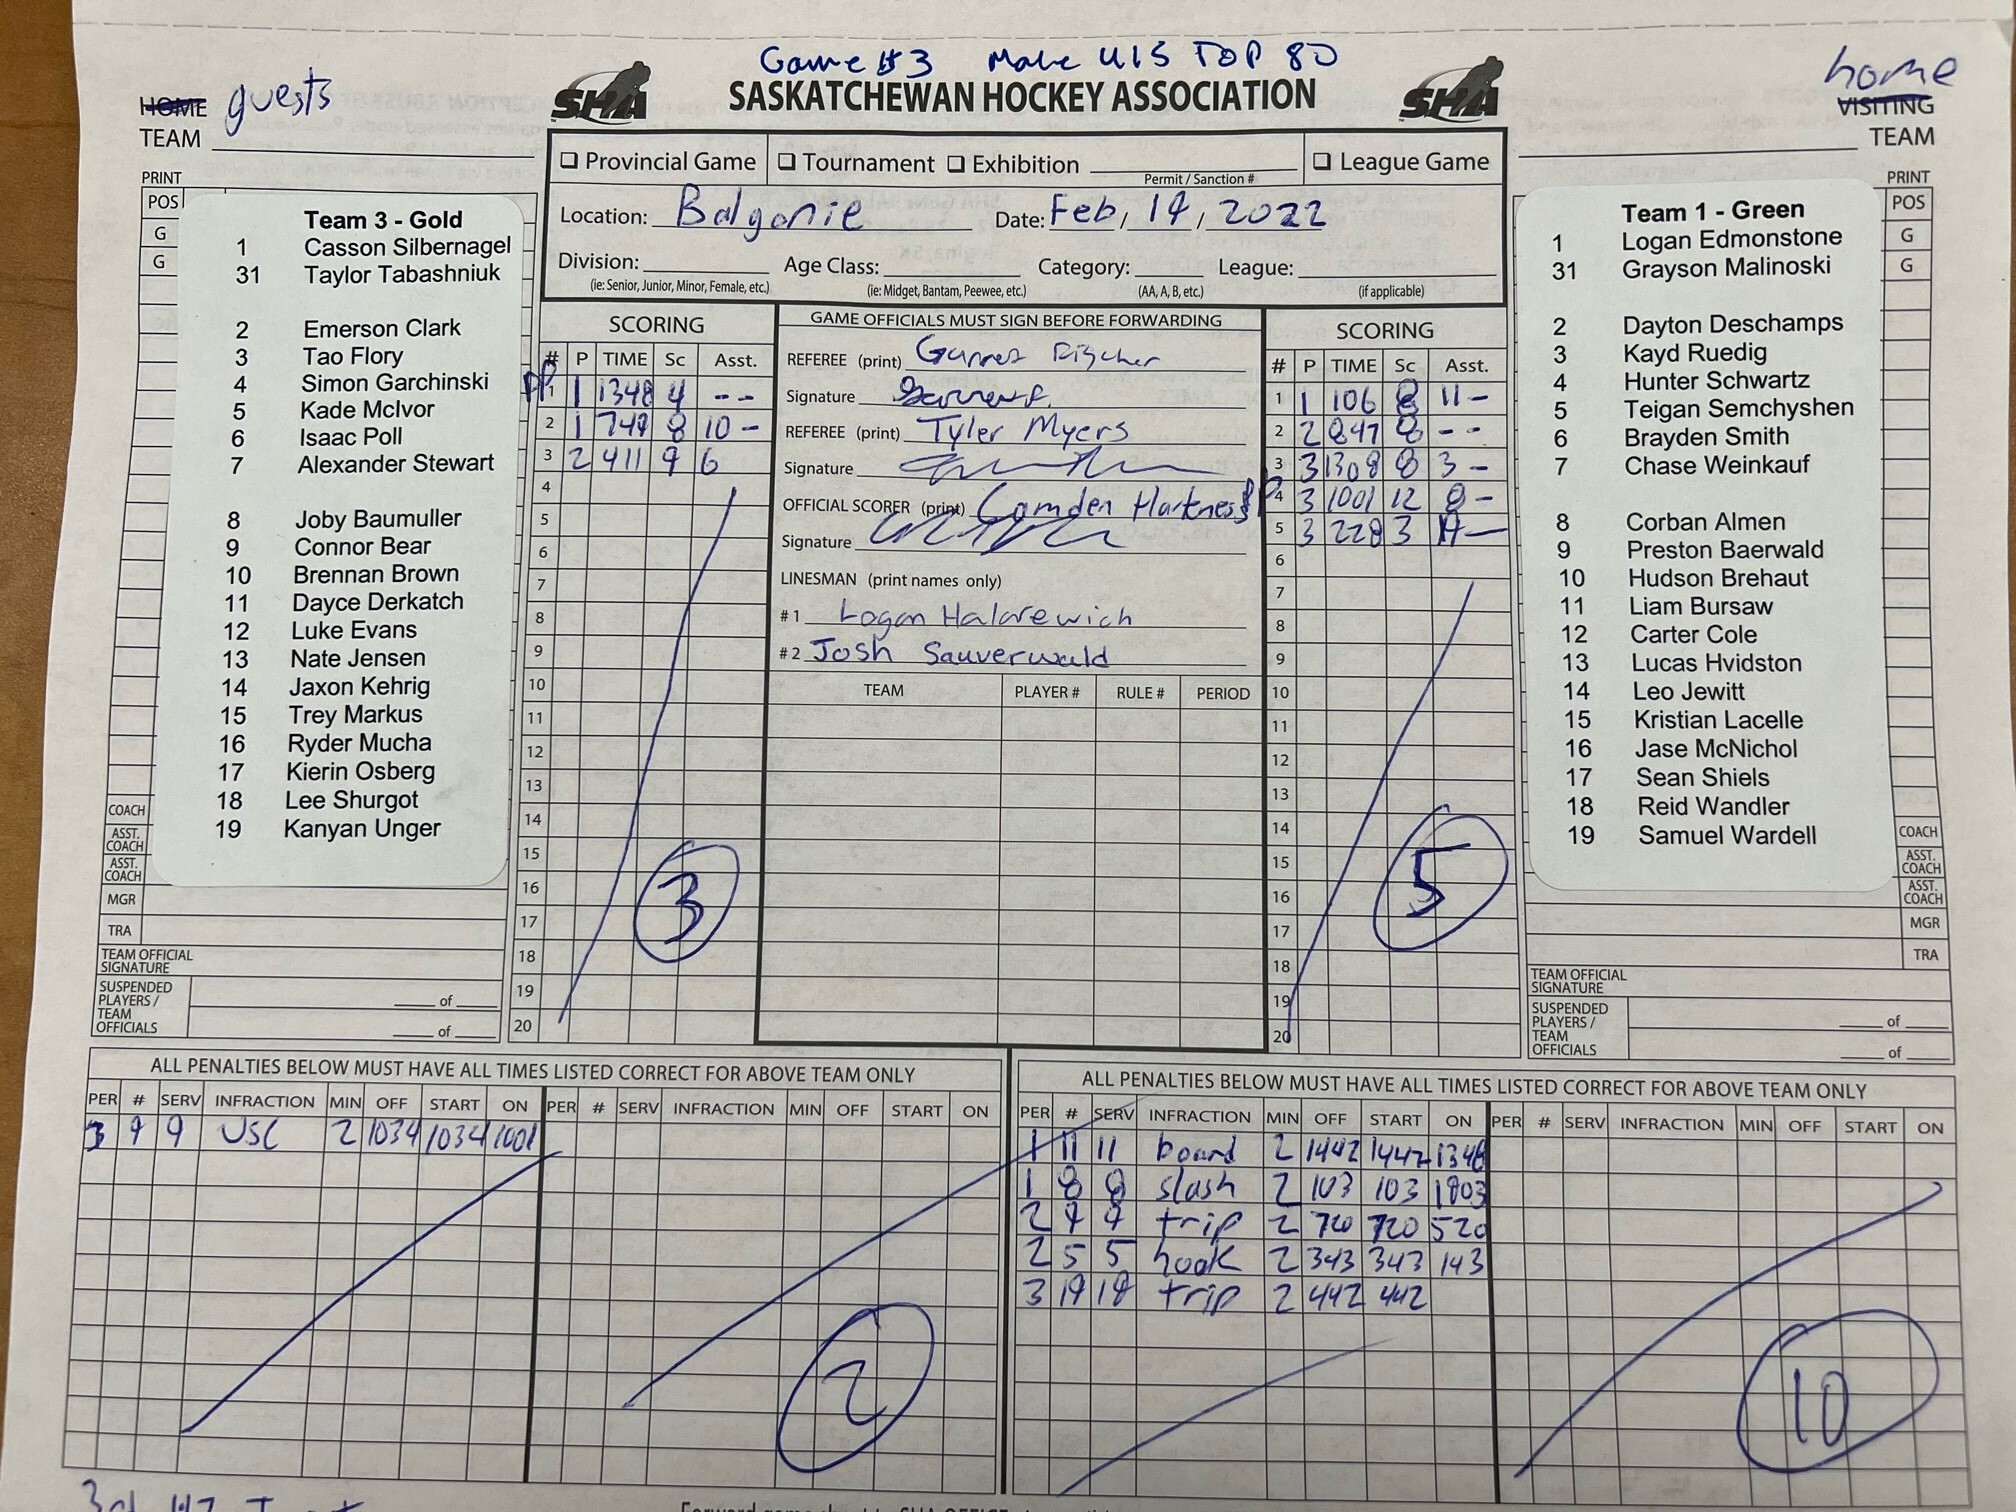 Game #3 Male U15 TOP 80
SHA SASKATCHEWAN HOCKEY ASSOCIATION SHA
HOME guests
TEAM
home
VISITING
TEAM
☐ Provincial Game ☐ Tournament ☐ Exhibition ☐ League Game
Permit / Sanction #
Location: Balgonie Date: Feb / 14 / 2022
Division: Age Class: Category: League:
(ie: Senior, Junior, Minor, Female, etc.) (ie: Midget, Bantam, Peewee, etc.) (AA, A, B, etc.) (if applicable)
PRINT
POS
G
G
Team 3 - Gold
1 Casson Silbernagel
31 Taylor Tabashniuk
2 Emerson Clark
3 Tao Flory
4 Simon Garchinski
5 Kade McIvor
6 Isaac Poll
7 Alexander Stewart
8 Joby Baumuller
9 Connor Bear
10 Brennan Brown
11 Dayce Derkatch
12 Luke Evans
13 Nate Jensen
14 Jaxon Kehrig
15 Trey Markus
16 Ryder Mucha
17 Kierin Osberg
18 Lee Shurgot
19 Kanyan Unger
COACH
ASST. COACH
ASST. COACH
MGR
TRA
TEAM OFFICIAL SIGNATURE
SUSPENDED PLAYERS / TEAM OFFICIALS
of
of
SCORING
# P TIME Sc Asst.
PP 1 1 1348 4 - -
2 1 749 8 10 -
3 2 411 9 6
4
5
6
7
8
9
10
11
12
13
14
15
16
17
18
19
20
3
GAME OFFICIALS MUST SIGN BEFORE FORWARDING
REFEREE (print)
Signature
REFEREE (print) Tyler Myers
Signature
OFFICIAL SCORER (print) Camden Harkness
Signature
LINESMAN (print names only)
#1 Logan Halarewich
#2 Josh Sauverwald
TEAM PLAYER # RULE # PERIOD
SCORING
# P TIME Sc Asst.
1 1 106 8 11 -
2 2 847 8 - -
3 3 1308 8 3 -
PP 4 3 1001 12 8 -
5 3 228 3
6
7
8
9
10
11
12
13
14
15
16
17
18
19
20
5
PRINT
POS
G
G
Team 1 - Green
1 Logan Edmonstone
31 Grayson Malinoski
2 Dayton Deschamps
3 Kayd Ruedig
4 Hunter Schwartz
5 Teigan Semchyshen
6 Brayden Smith
7 Chase Weinkauf
8 Corban Almen
9 Preston Baerwald
10 Hudson Brehaut
11 Liam Bursaw
12 Carter Cole
13 Lucas Hvidston
14 Leo Jewitt
15 Kristian Lacelle
16 Jase McNichol
17 Sean Shiels
18 Reid Wandler
19 Samuel Wardell
COACH
ASST. COACH
ASST. COACH
MGR
TRA
TEAM OFFICIAL SIGNATURE
SUSPENDED PLAYERS / TEAM OFFICIALS
of
of
ALL PENALTIES BELOW MUST HAVE ALL TIMES LISTED CORRECT FOR ABOVE TEAM ONLY
PER # SERV INFRACTION MIN OFF START ON PER # SERV INFRACTION MIN OFF START ON
3 9 9 USC 2 1034 1034 1001
2
ALL PENALTIES BELOW MUST HAVE ALL TIMES LISTED CORRECT FOR ABOVE TEAM ONLY
PER # SERV INFRACTION MIN OFF START ON PER # SERV INFRACTION MIN OFF START ON
1 11 11 board 2 1442 1442 1348
1 8 8 slash 2 103 103 1903
2 9 9 trip 2 720 720 520
2 5 5 hook 2 343 343 143
3 19 19 trip 2 442 442
10